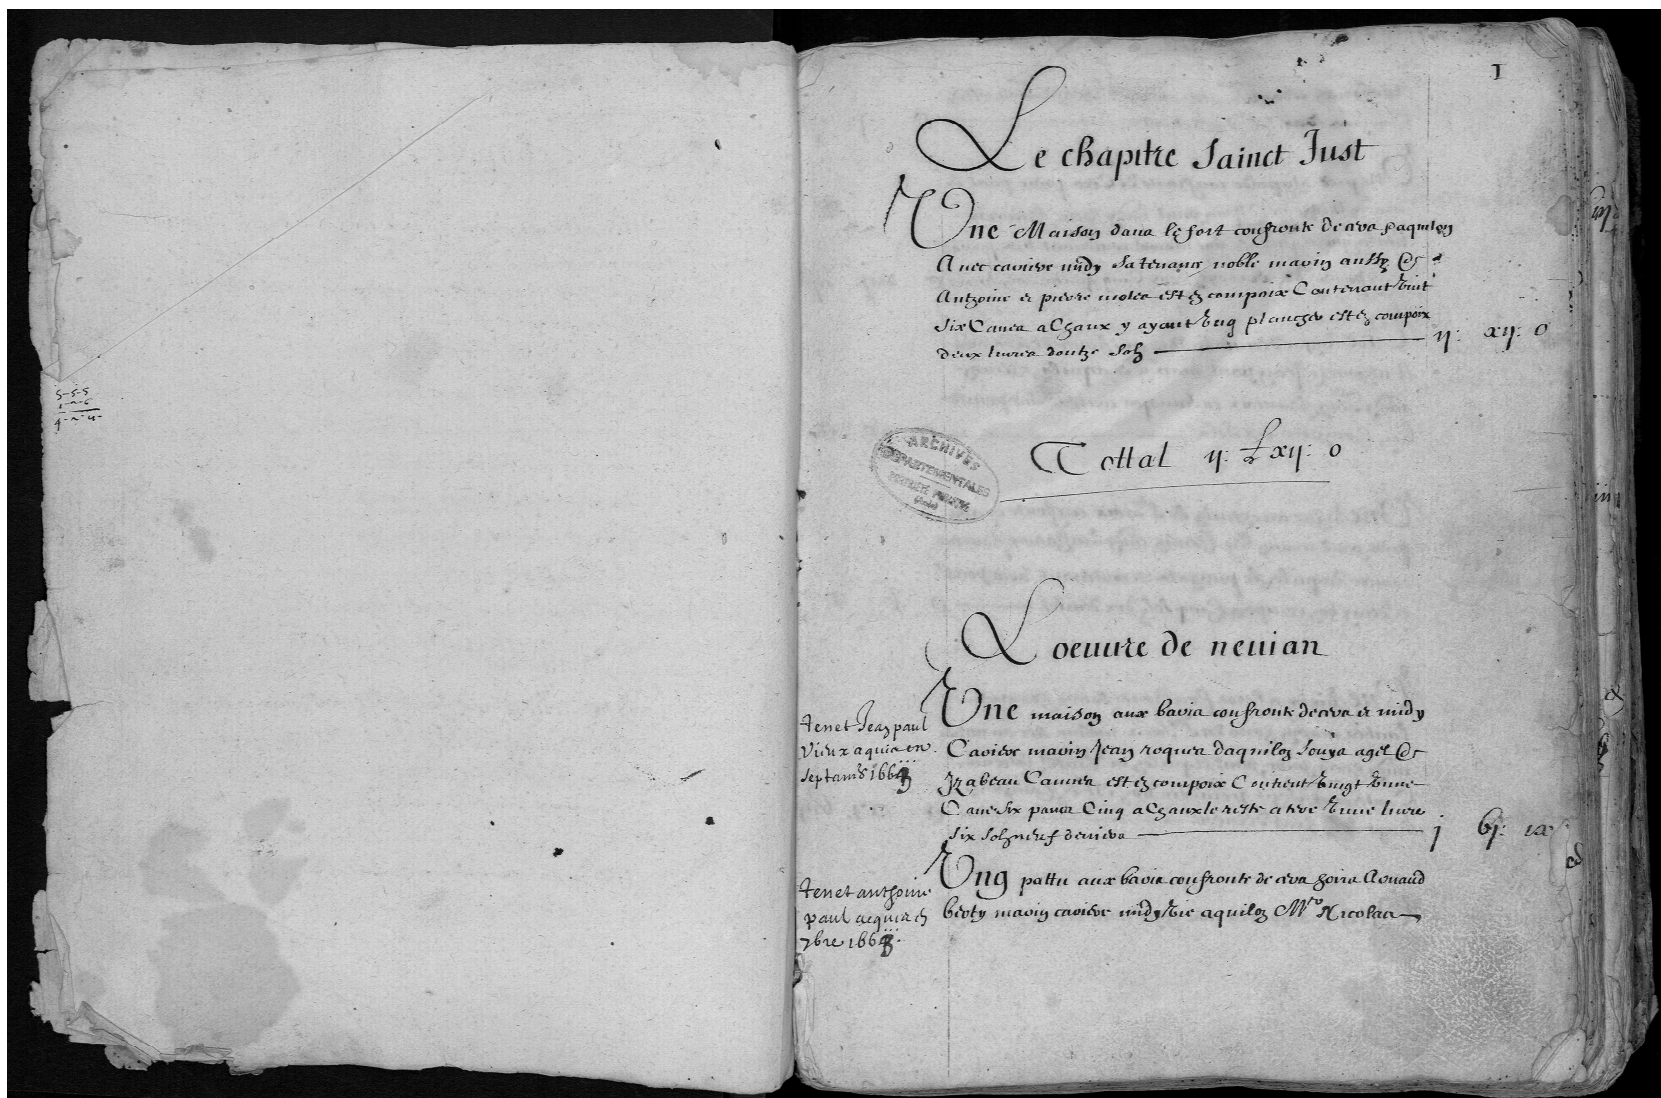 5-5-5
1
Le chapitre Sainct Just
Une Maison dans le fort confronte de cers daquilon
Avec caviere midy la tenance noble marin aussy &
Anthoine et pierre moles est en compoix Contenant vint
Six Canes a Chaux y ayant ung plancher est en compoix
deux livres doutze solz
ij: xij: 0
Tottal ij: L xij: 0
ARCHIVES
DEPARTEMENTALES
(Aude)
L oeuvre de nevian
tenet Jean paul
vieux aquis en
septambre 1664
Une maison aux baris confronte de cers et midy
Carriere marin Jean roques daquilon Souya agel &
Izabeau Cannes est en compoix Contient vingt une
Cane Six pams Cinq a Chaux le reste a tere une livre
six solz neuf deniers
j bj: ix
tenet anthoine
paul acquis en
7bre 1664
Ung pattu aux baris confronte de cers hoirs Arnaud
beoty marin cariere midy vie aquilon Mre Nicolas